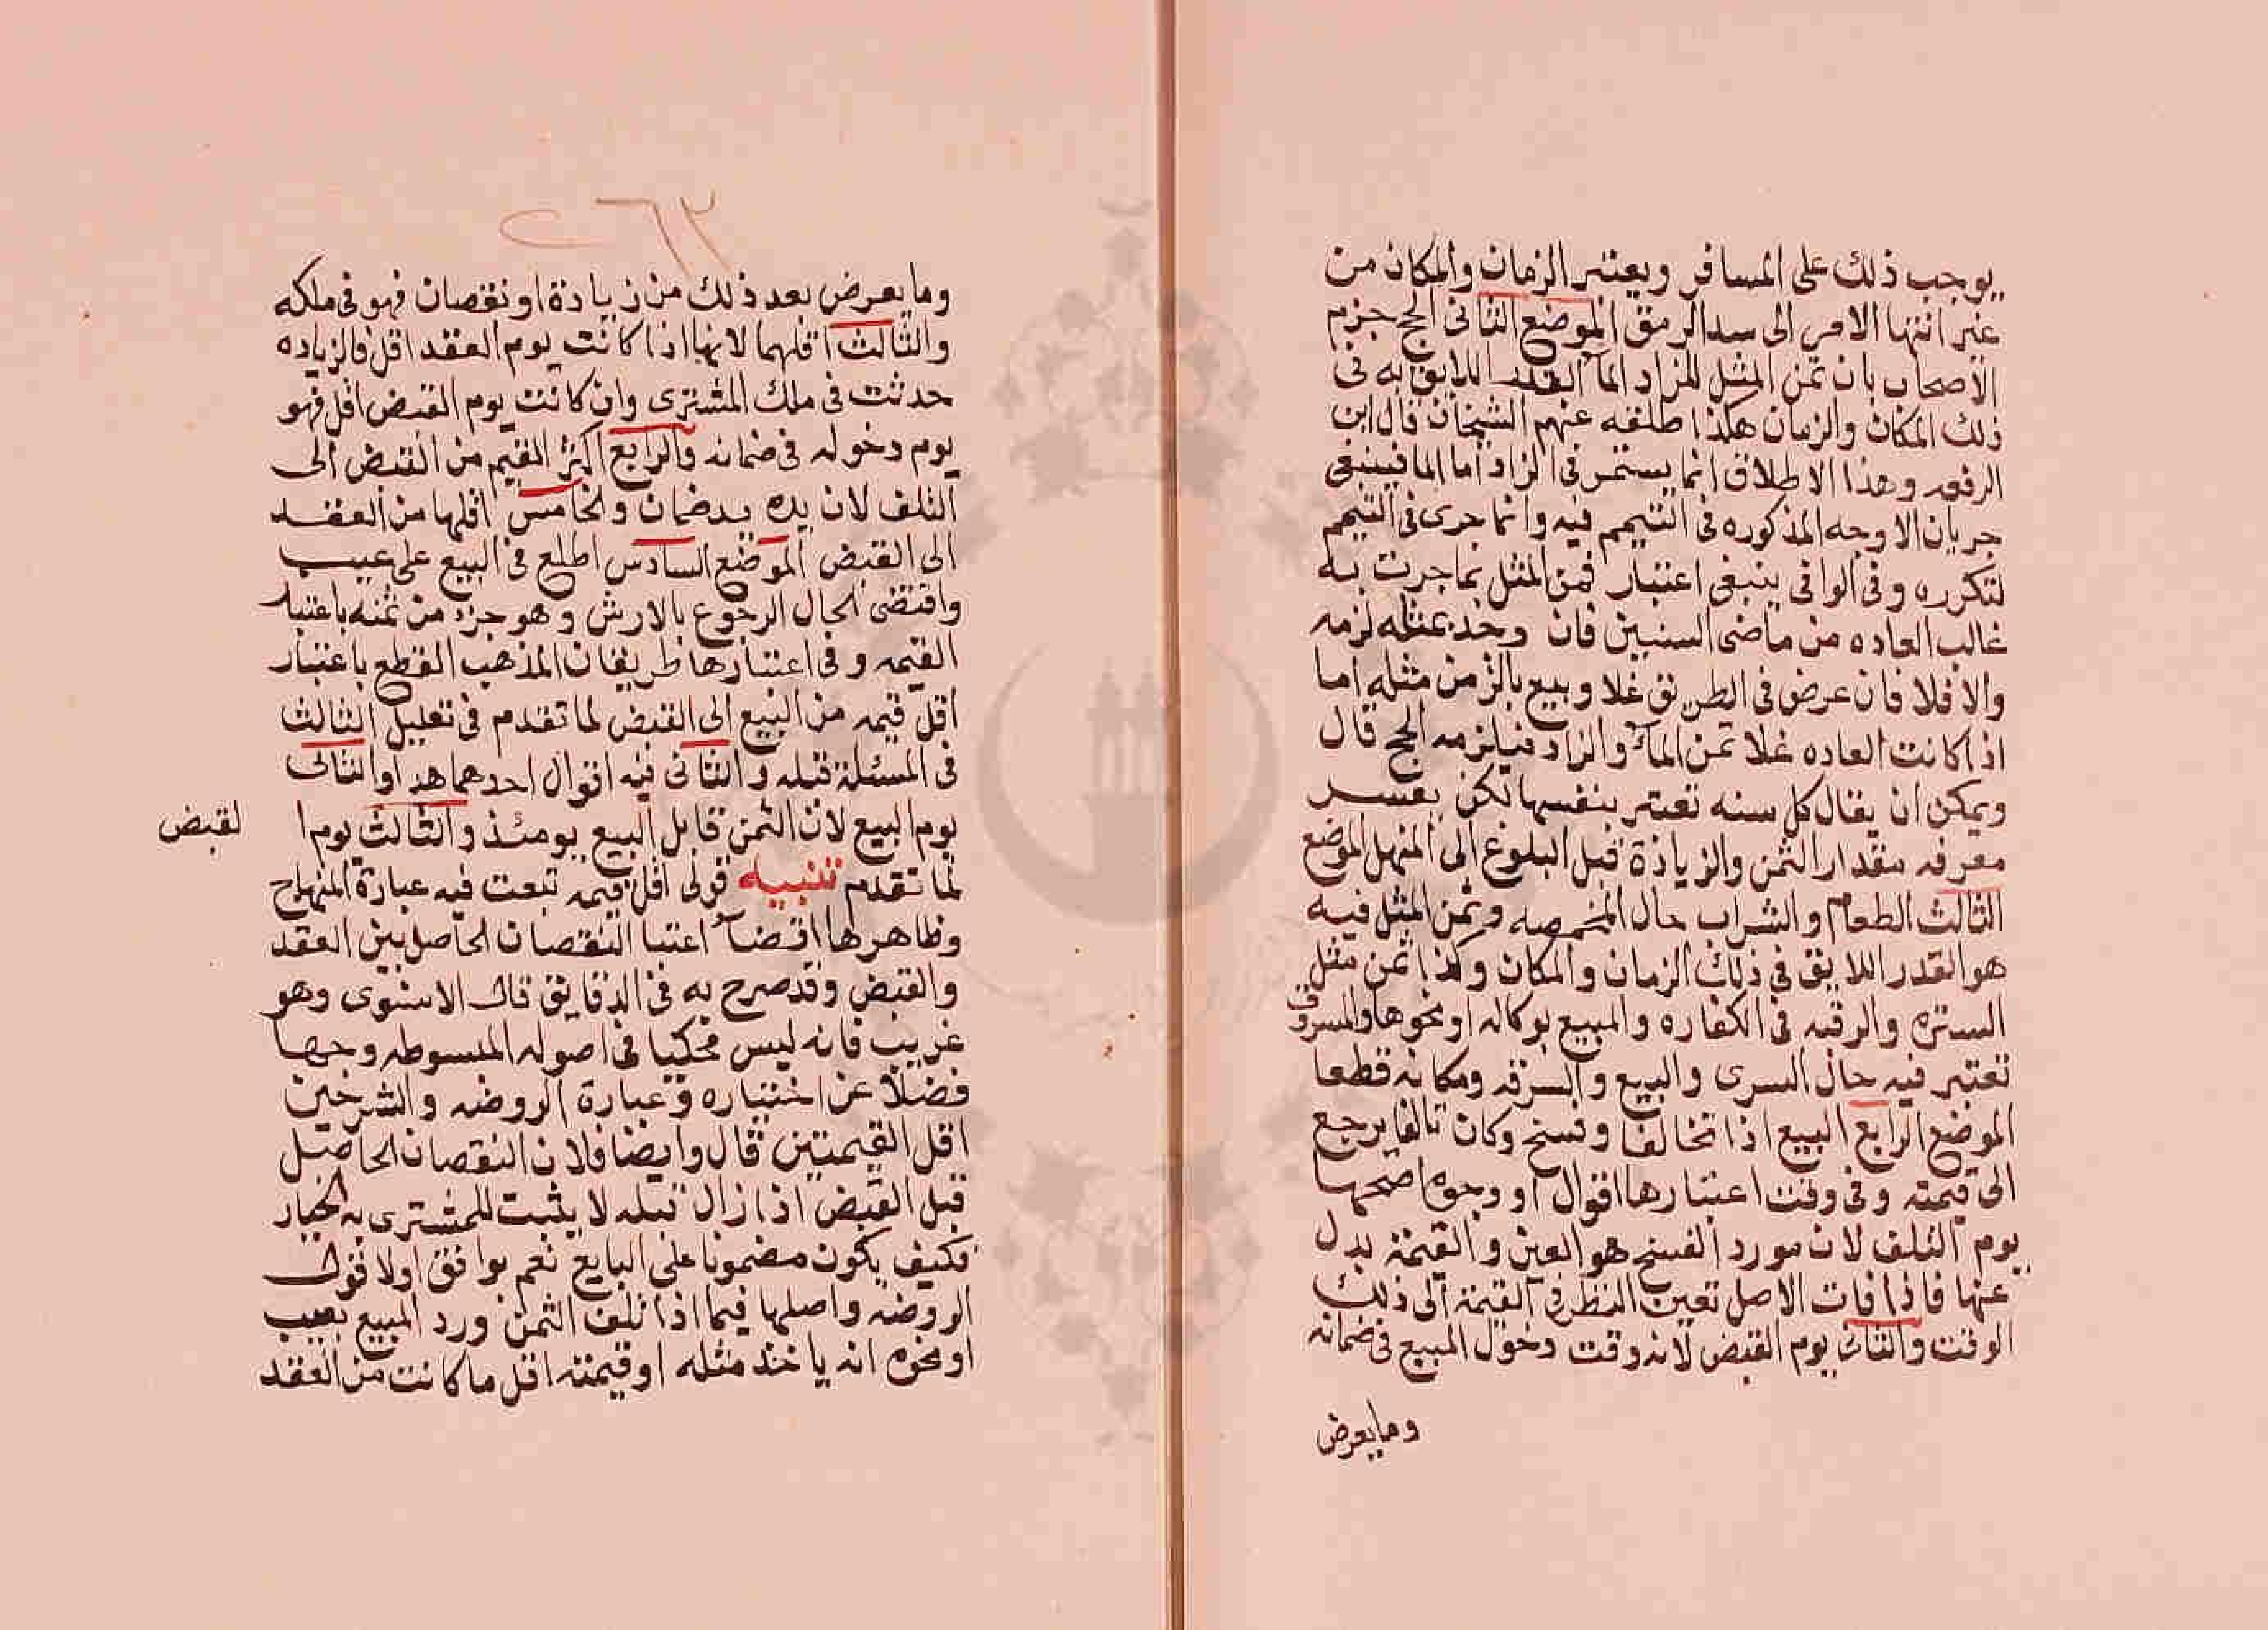 يوجب ذلك على المسافر ويعتبر الزمان والمكان من
غير انتها الامر الى سد الرمق الموضع الثانى الحج جزم
الاصحاب بان ثمن المثل للزاد الما القدر اللايق به فى
ذلك المكان والزمان هكذا طلقه عنهم الشيخان قال ابن
الرفعه وهذا الاطلاق انما يستمر فى الزاد اما الما فينبغى
جريان الاوجه المذكوره فى التيمم فيه وانما جرى فى التيمم
لتكرره وفى الوافى ينبغى اعتبار ثمن المثل بما جرت به
غالب العاده من ماضى السنين فان وجد بمثله لزمه
والا فلا فان عرض فى الطريق غلا وبيع بالزمن مثله اما
اذا كانت العاده غلا ثمن الما والزاد فيلزمه الحج قال
ويمكن ان يقال كل سنه تعتبر بنفسها لكن يعسر
معرفه مقدار الثمن والزيادة قبل البلوغ الى المنهل الموضع
الثالث الطعام والشراب حال المخمصه وثمن المثل فيه
هو القدر اللايق فى ذلك الزمان والمكان وكذا ثمن مثل
الستره والرقبه فى الكفاره والمبيع بوكاله او نحوها والمسروق
تعتبر فيه حال السرى والبيع والسرقه ومكانه قطعا
الموضع الرابع المبيع اذا تخالفا وفسخ وكان تالفا يرجع
الى قيمته وفى وقت اعتبارها اقوال او وجوه اصحها
يوم التلف لان مورد الفسخ هو العين والقيمة بدل
عنها فاذا فات الاصل تعين النظر فى القيمة الى ذلك
الوقت والثانى يوم القبض لانه وقت دخول المبيع فى ضمانه
وما يعرض
٢٦٢
وما يعرض بعد ذلك من زيادة او نقصان فهو فى ملكه
والثالث اقلهما لانها اذا كانت يوم العقد اقل فالزياده
حدثت فى ملك المشترى وان كانت يوم القبض اقل فهو
يوم دخوله فى ضمانه والرابع اكثر القيم من القبض الى
التلف لان يده يد ضمان والخامس اقلها من العقد
الى القبض الموضع السادس اطلع فى البيع على عيب
واقتضى الحال الرجوع بالارش وهو جزء من ثمنه باعتبار
القيمه وفى اعتبارها طريقان المذهب القطع باعتبار
اقل قيمه من البيع الى القبض لما تقدم فى تعليل الثالث
فى المسئلة قبله والثانى فيه اقوال احدهما هذا والثانى
يوم البيع لان الثمن قابل البيع يومئذ والثالث يوم ا لقبض
لما تقدم تنبيه قولى اقل قيمه تبعت فيه عبارة المنهاج
وظاهرها اقتضا اعتبا النقصان الحاصل بين العقد
والقبض وقد صرح به فى الدقايق قال الاسنوى وهو
غريب فانه ليس محكيا فى اصوله المبسوطه وجها
فضلا عن اختياره وعبارة الروضه والشرحين
اقل القيمتين قال وايضا فلان النقصان الحاصل
قبل القبض اذا زال قبله لا يثبت للمشترى به الخيار
فكيف يكون مضمونا على البايع نعم يوافق اولا قول
الروضه واصلها فيما اذا تلف الثمن ورد المبيع بعيب
او نحوه انه ياخذ مثله او قيمته اقل ما كانت من العقد